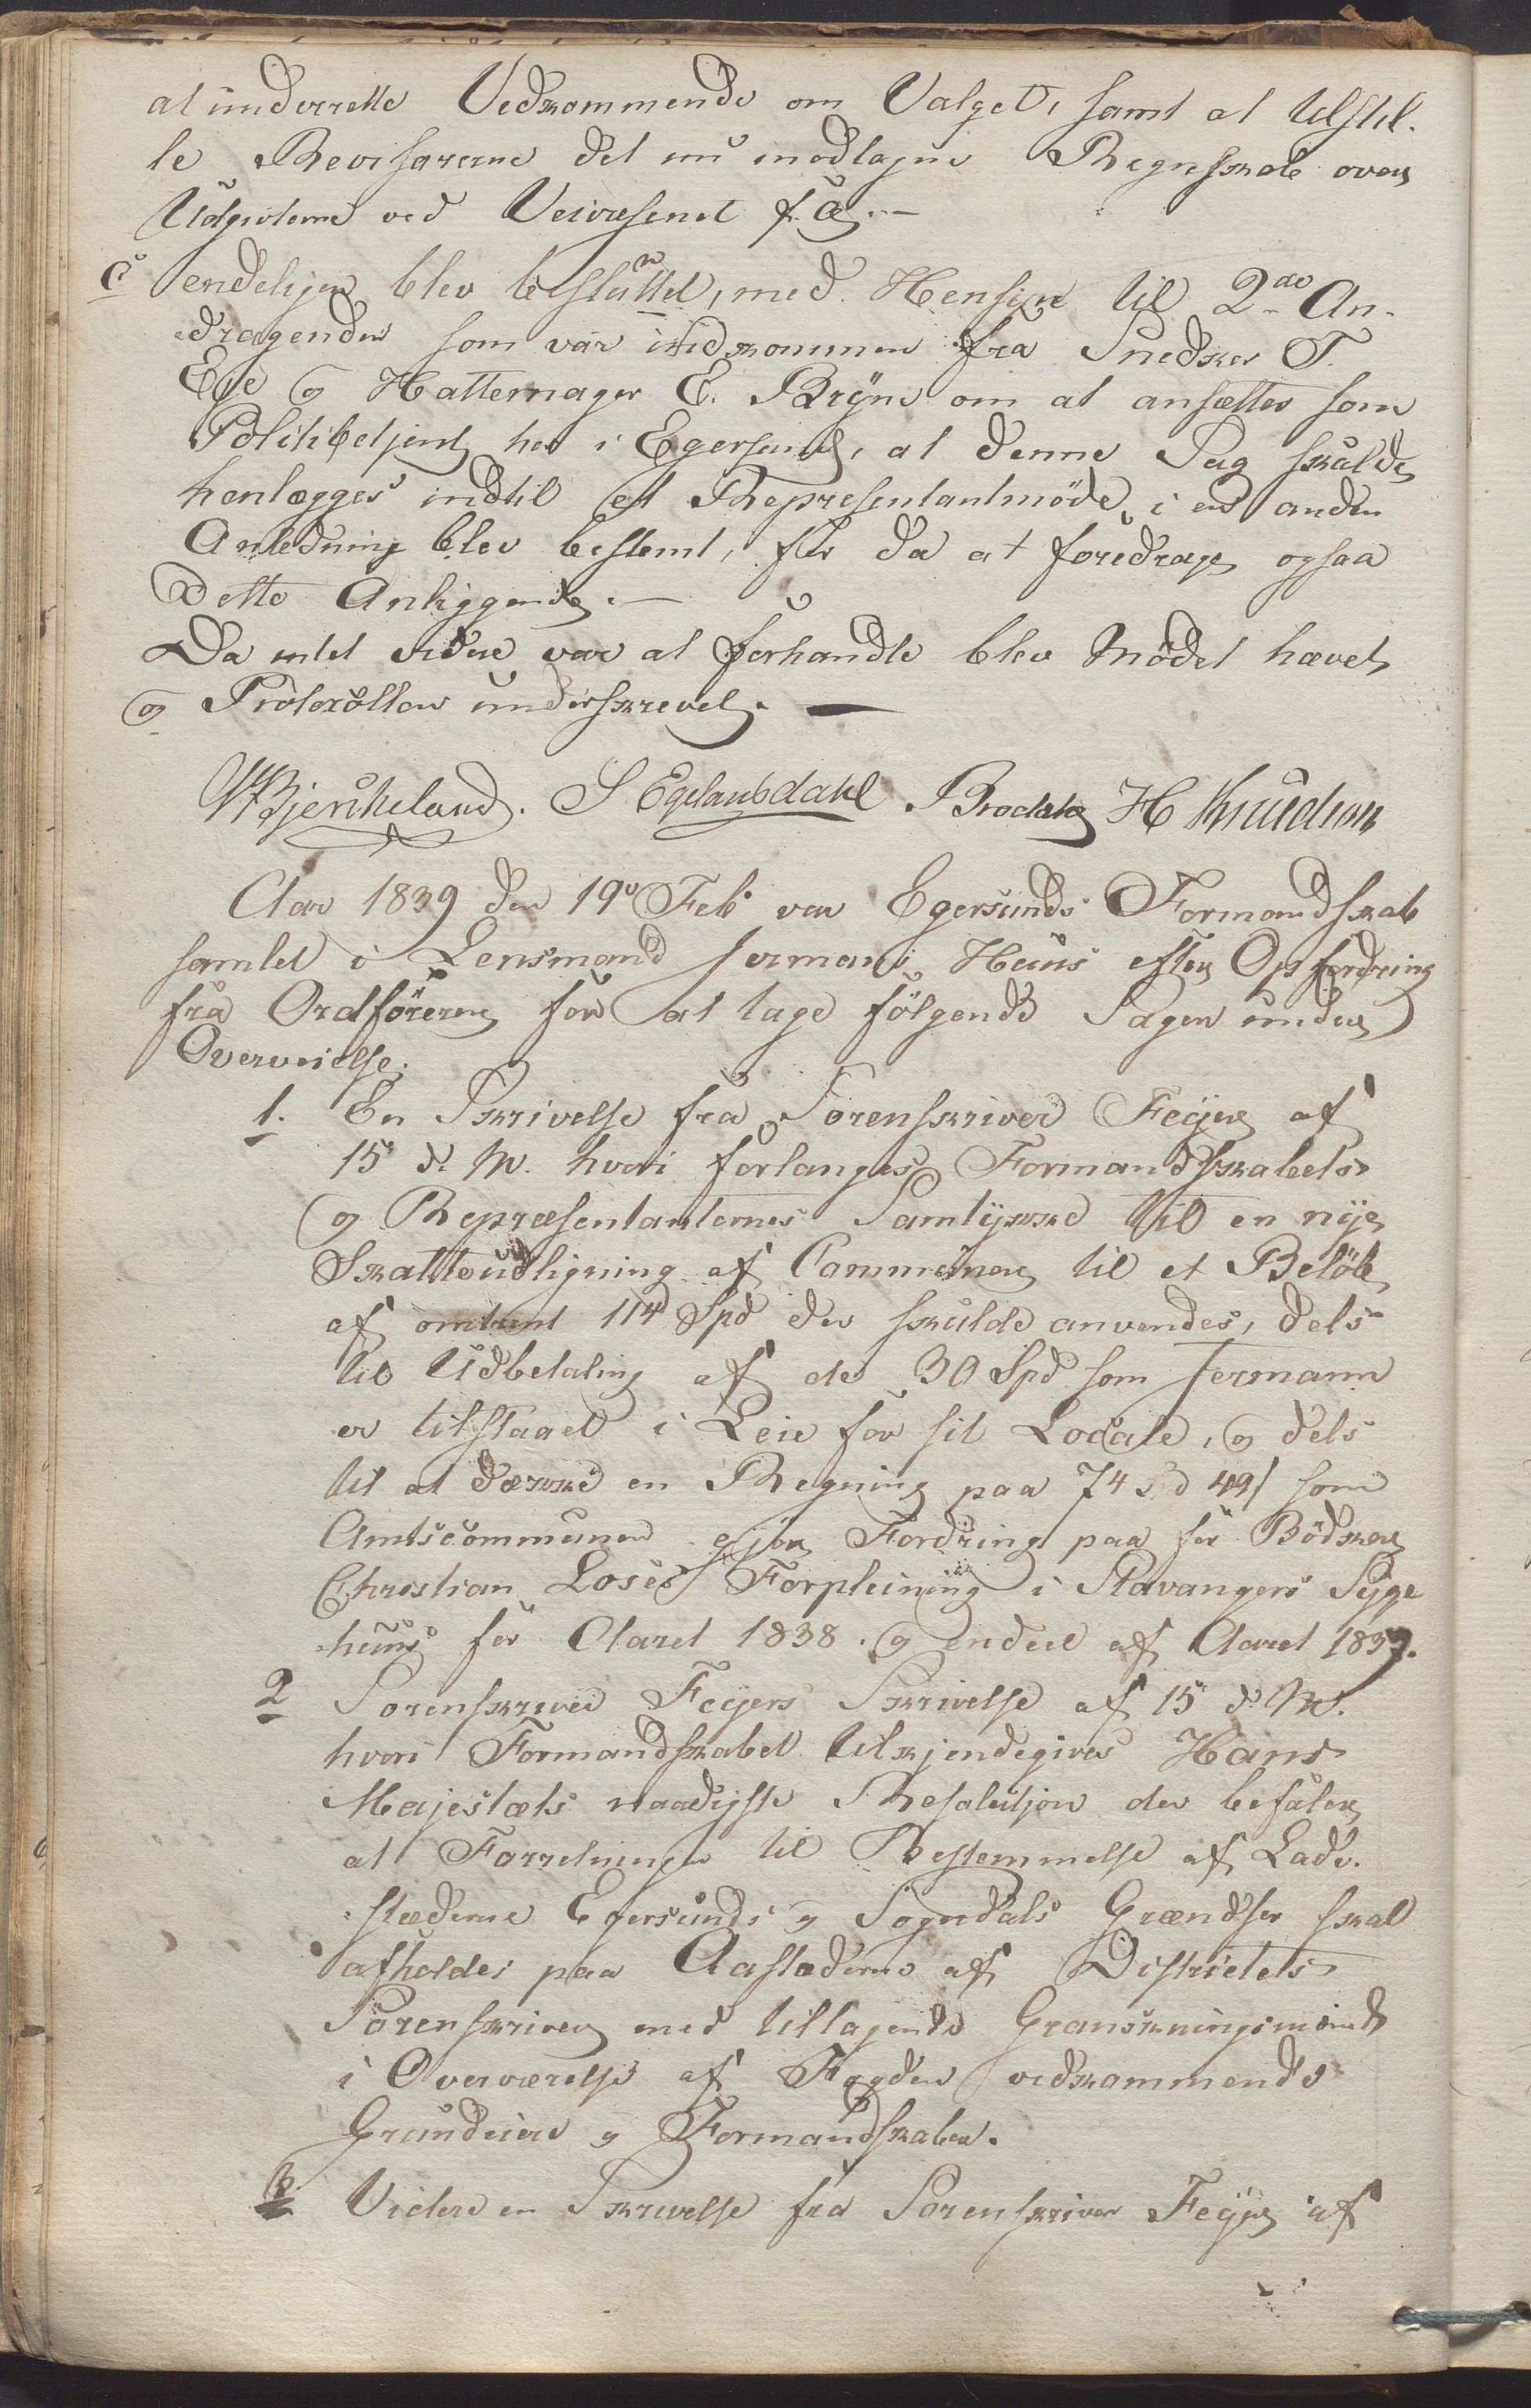 at underrette Vedkommende om Valget, samt at tilstil-
le Revisorerne det nu modtagne Regnskab over
Udgivterne ved Veivæsenet f. A. —
c endeligen blev besluttet, med Hensyn til 2de An-
dragender som var indkommen fra Snedker T.
Eie og Hattemager E. Bryne om at ansættes som
Politibetjent her i Egersund, at denne Sag skulde
henlægges indtil et Representantmöde i en anden
Anledning blev bestemt, for da at foredrage ogsaa
dette Anliggende. —
Da intet videre var at forhandle blev Mödet hævet
og Protokollen underskrevet. —
Bjerkeland. S Egelandsdahl. Brodahl H Knudson
Aar 1839 den 19de Feb var Egersunds Formandskab
samlet i Lensmand Fermans Huus efter Opfordring
fra Ordföreren for at tage fölgende Sager under
Overveielse.
1. En Skrivelse fra Sorenskriver Feyer af
15 d. M. hvori forlanges Formandskabets
og Repræsentanternes Samtykke til en nye
Skatteudligning af Communen til et Belöb
af omtrent 114 Spd der skulde anvendes, dels
til Udbetaling af de 30 Spd som Fermann
er tilstaaet i Leie for sit Locale, og dels
til at dække en Regning paa 74 Sd 49 s som
Amtscommunen gjör Fordring paa for Bödker
Christian Loses Forpleining i Stavangers Syge
huus for Aaret 1838. og endeel af Aaret 1837.
2 Sorenskriver Feyers Skrivelse af 15 d. M.
hvori Formandskabet tilkjendegives Hans
Majestæts naadigste Resolutjon der befaler
at Forretningen til Bestemmelse af Lade-
stæderne Egersunds og Sogndals Grændser skal
afholdes paa Aastæderne af Districtets
Sorenskriver med tiltagende Granskningsmænd
i Overværelse af Fogden vedkommende
Grundeiere og Formandskaber.
3 Videre en Skrivelse fra Sorenskriver Feyer af